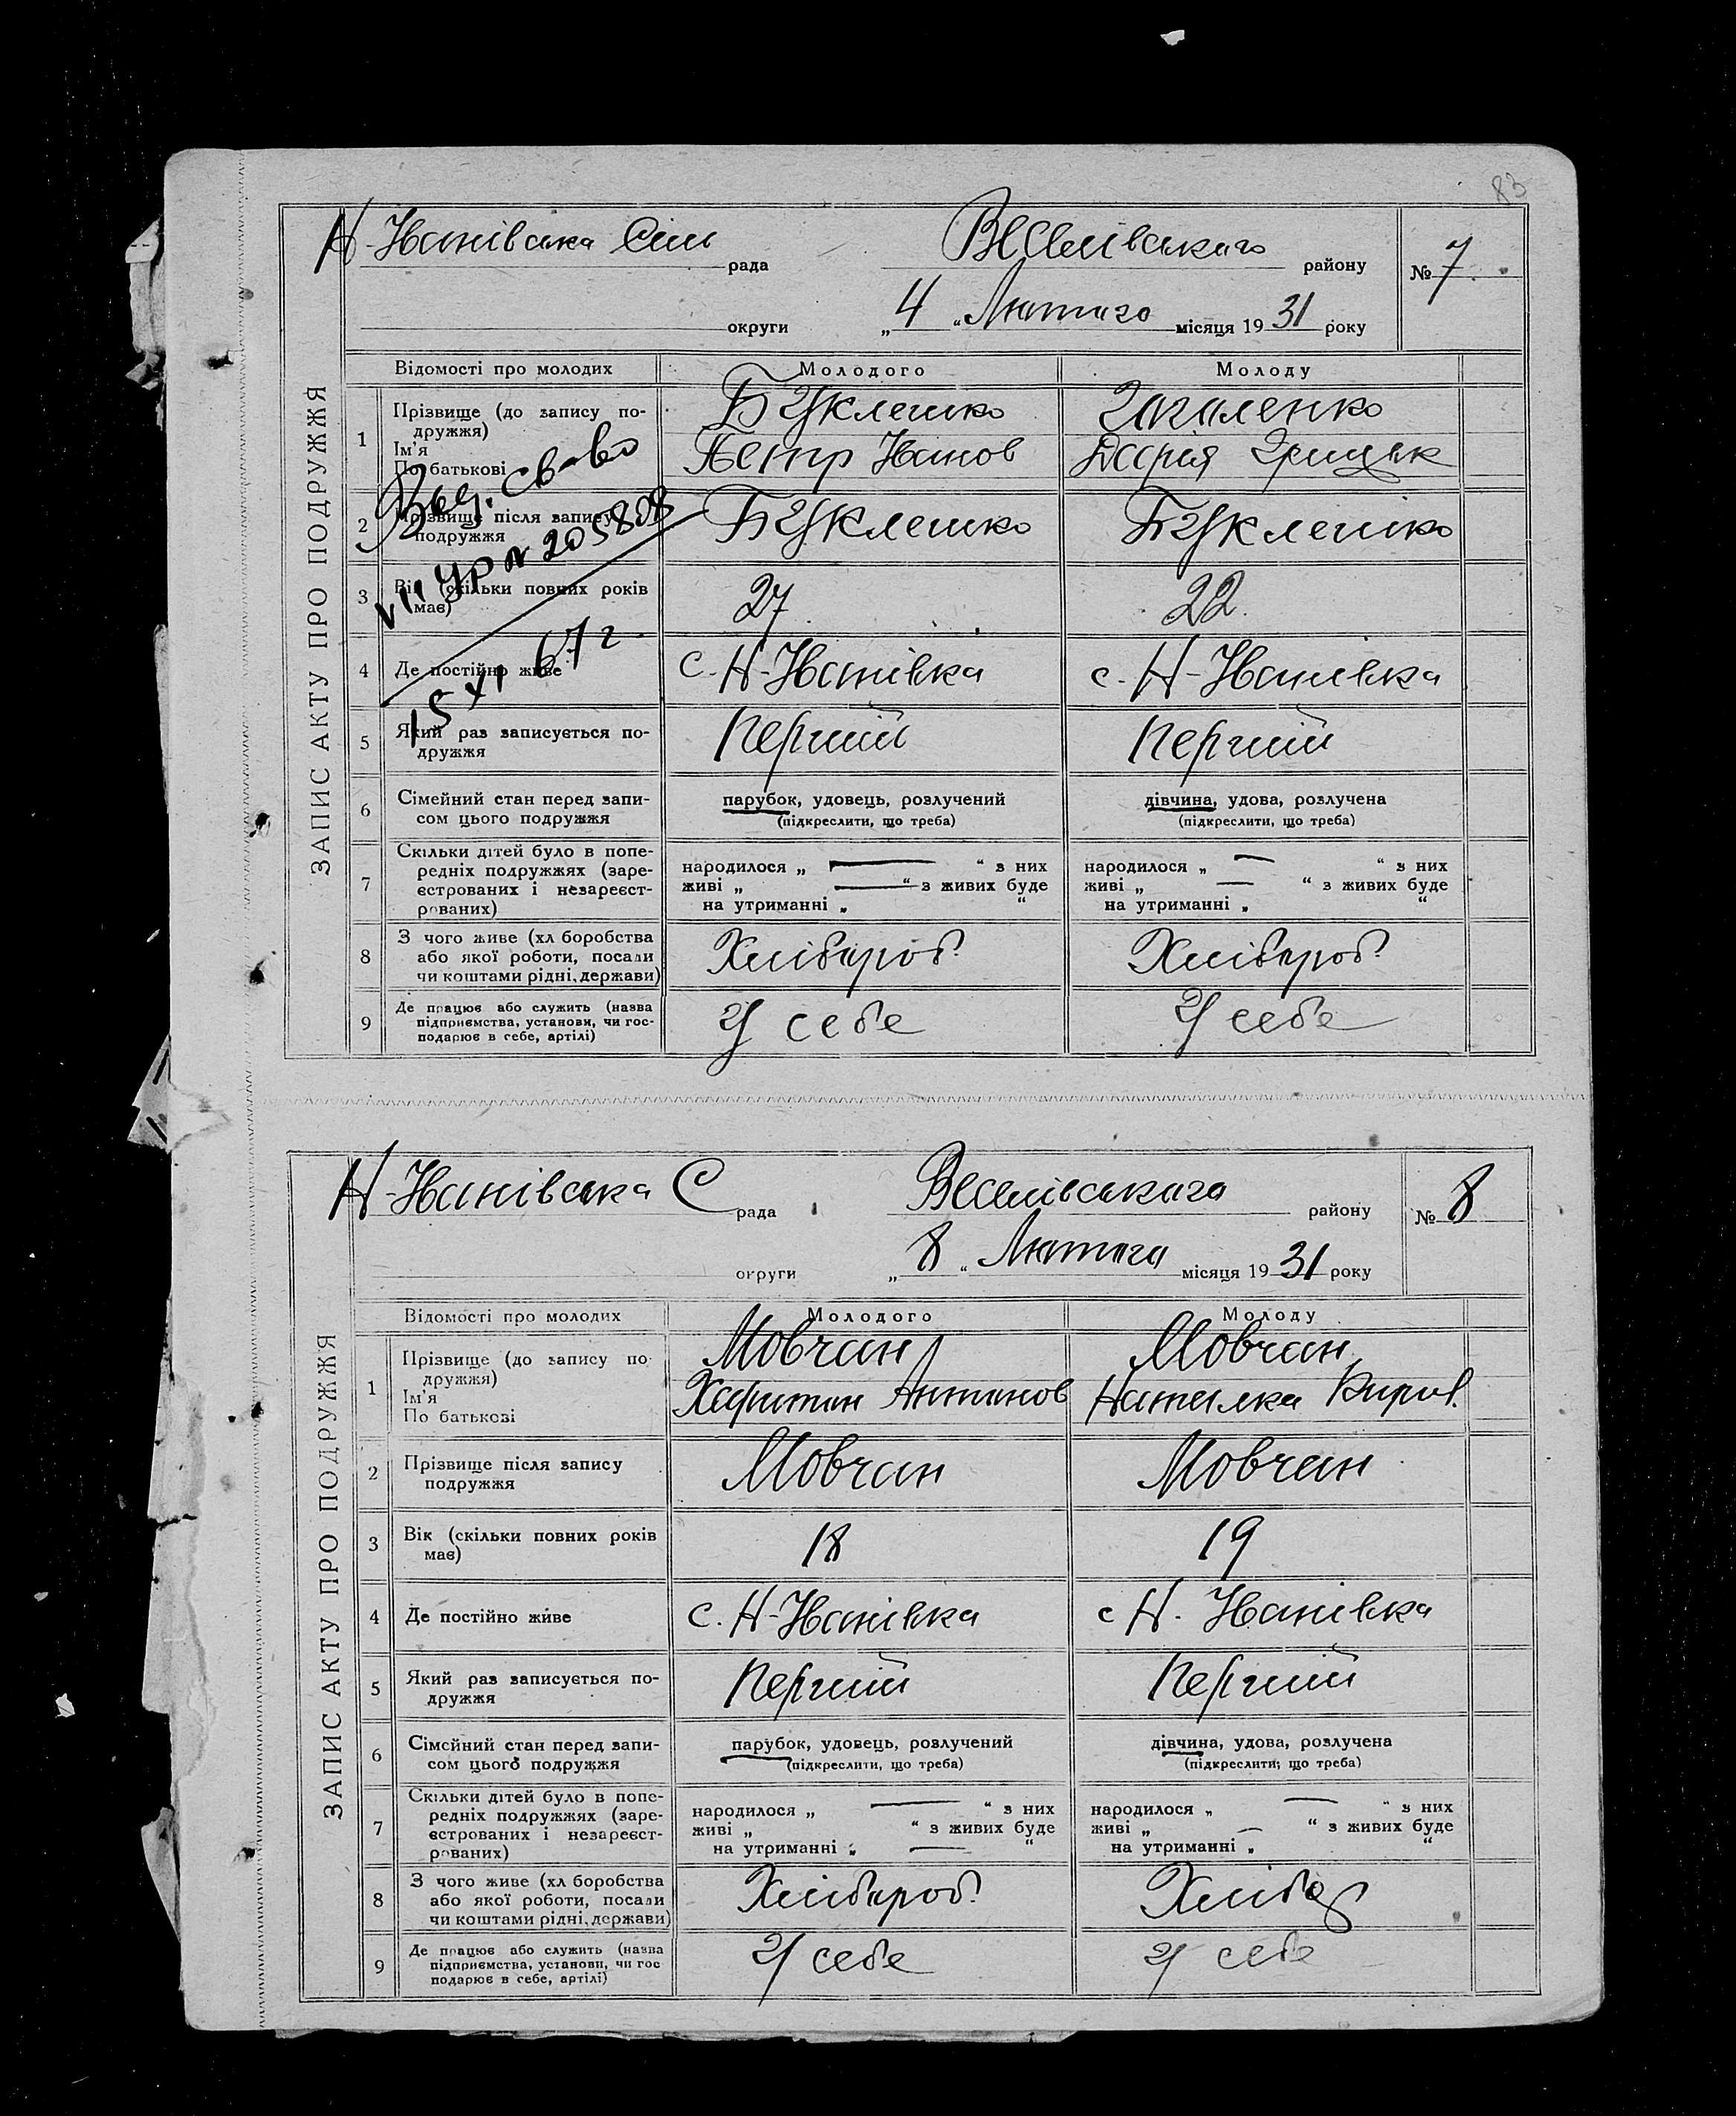 83
Н-Іванівська Сіль рада Веселівського району № 7
округи „ 4 “ Лютого місяця 1931 року
ЗАПИС АКТУ ПРО ПОДРУЖЖЯ
Відомості про молодих Молодого Молоду
1 Прізвище (до запису подружжя) Буклешко Гоголенко
Ім'я По батькові Петр Іванов Дарія Грицьк
Выд. св-во
VII УР № 205808
15 XI 67 г.
2 Прізвище після запису подружжя Буклешко Буклешко
3 Вік (скільки повних років має) 27 22.
4 Де постійно живе с. Н-Іванівка с. Н-Іванівка
5 Який раз записується подружжя Перший Перший
6 Сімейний стан перед записом цього подружжя парубок, удовець, розлучений дівчина, удова, розлучена
(підкреслити, що треба) (підкреслити, що треба)
7 Скільки дітей було в попередніх подружжях (зареєстрованих і незареєстрованих) народилося „ — “ з них народилося „ — “ з них
живі „ — “ з живих буде живі „ — “ з живих буде
на утриманні „ “ на утриманні „ “
8 З чого живе (хл боробства або якої роботи, посади чи коштами рідні, держави) Хлібороб. Хлібороб.
9 Де працює або служить (назва підприємства, установи, чи господарює в себе, артілі) У себе У себе
Н-Іванівська С рада Веселівського району № 8
округи „ 8 “ Лютого місяця 1931 року
ЗАПИС АКТУ ПРО ПОДРУЖЖЯ
Відомості про молодих Молодого Молоду
1 Прізвище (до запису подружжя) Мовчан Мовчан
Ім'я По батькові Харитон Антонов Наталка Киров.
2 Прізвище після запису подружжя Мовчан Мовчан
3 Вік (скільки повних років має) 18 19
4 Де постійно живе с. Н-Іванівка с Н. Іванівка
5 Який раз записується подружжя Перший Перший
6 Сімейний стан перед записом цього подружжя парубок, удовець, розлучений дівчина, удова, розлучена
(підкреслити, що треба) (підкреслити, що треба)
7 Скільки дітей було в попередніх подружжях (зареєстрованих і незареєстрованих) народилося „ — “ з них народилося „ — “ з них
живі „ “ з живих буде живі „ — “ з живих буде
на утриманні „ — “ на утриманні „ “
8 З чого живе (хл боробства або якої роботи, посади чи коштами рідні, держави) Хлібороб. Хлібор
9 Де працює або служить (назва підприємства, установи, чи господарює в себе, артілі) У себе У себе